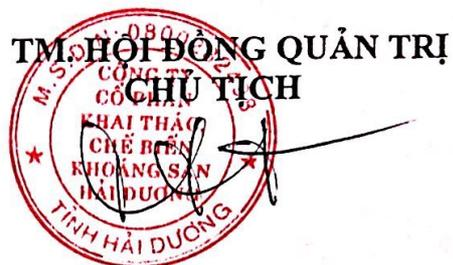 TM. HỘI ĐỒNG QUẢN TRỊ
CHỦ TỊCH
M.S.D.N:
CÔNG TY
CỔ PHẦN
KHAI THÁC,
CHẾ BIẾN
KHOÁNG SẢN
HẢI DƯƠNG
TỈNH HẢI DƯƠNG